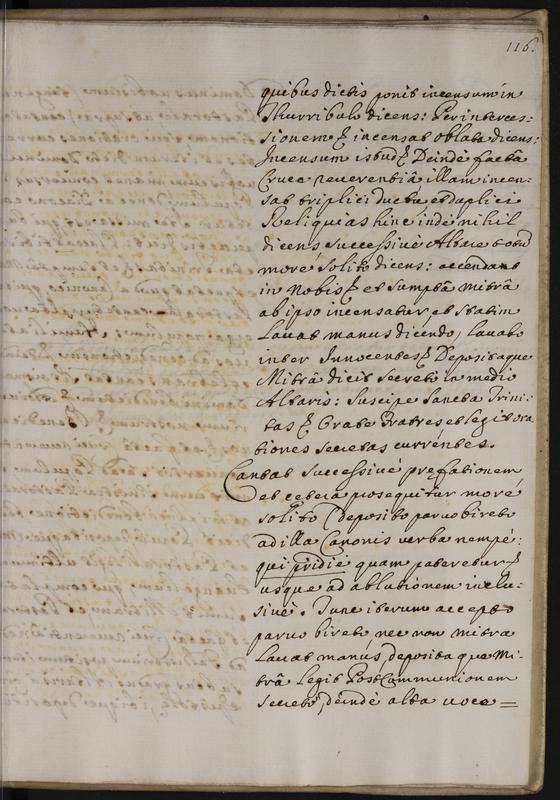 116.
quibus dictis ponit incensum in
Thurribulo dicens: Per interces:
sionem & incensat oblata dicens:
Incensum istud & Deinde facta
Cruce reverentiâ illam incen:
sat triplici ductu et duplici
Reliquias hinc inde nihil
dicens successivè Altare totū
more solito dicens: accendat
in Nobis & et sumptâ mitrâ
ab ipso incensatur, et statim
Lavat manus dicendo, lavabo
inter Innocentes & Depositaque
Mitrâ dicit secretò in medio
Altaris: Suscipe Sancta Trini:
tas & Orate Fratres et legit ora
tiones secretas currentes.
Cantat successivè prefationem
et cetera prosequitur more
solito (deposito parvo bireto
ad illa Canonis verba nempè:
qui pridie quam pateretur &
usque ad ablutionem inclu:
sivè. Tunc iterum accepto
parvo bireto, nec non mitra
Lavat manus, deposita que Mi-
trâ legit PostCommunionem
secretò, deinde alta voce =